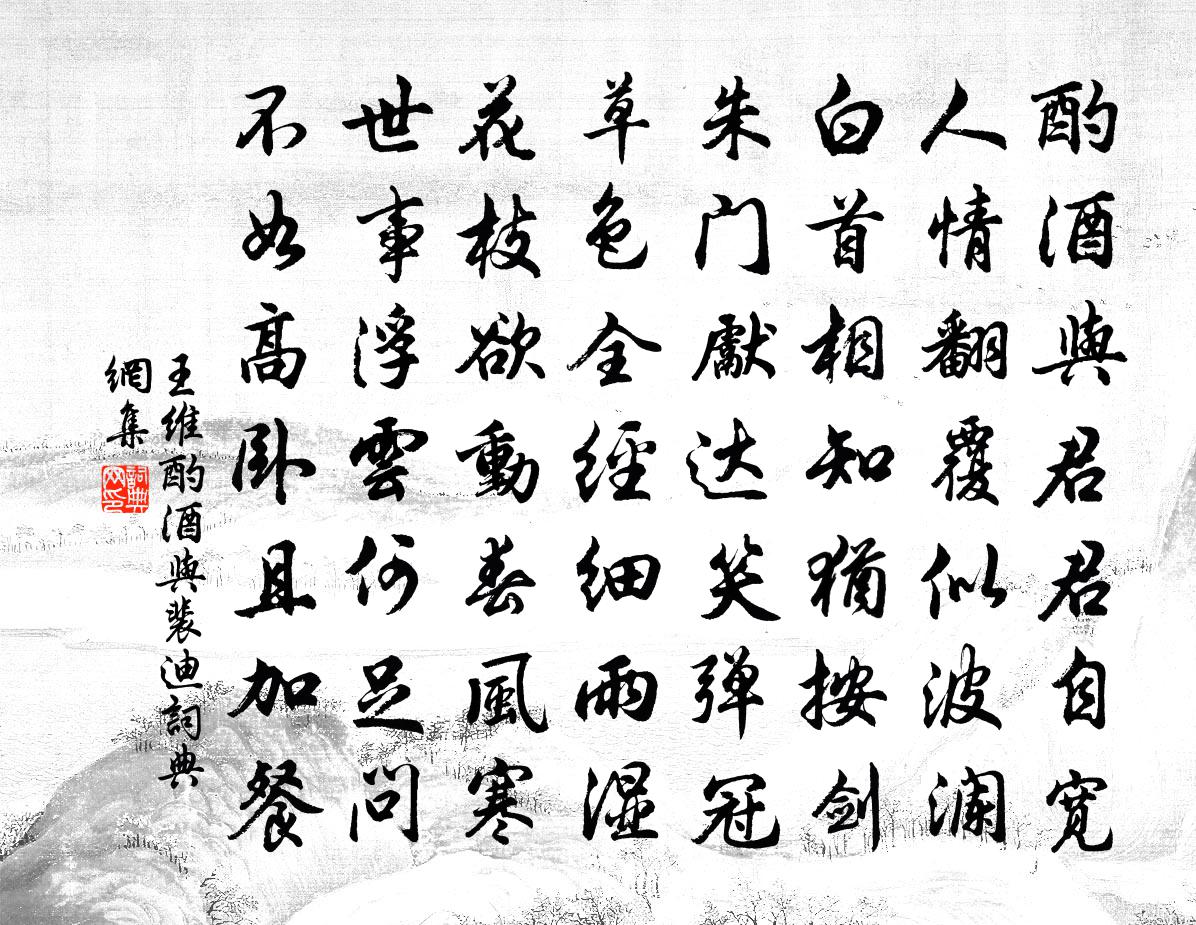 酌酒與君君自寬
人情翻覆似波澜
白首相知猶按剑
朱门獻达笑弹冠
草色全經細雨湿
花枝欲動春風寒
世事浮雲何足问
不如高卧且加餐
王維酌酒與裴迪詞典
網集
詞典网印